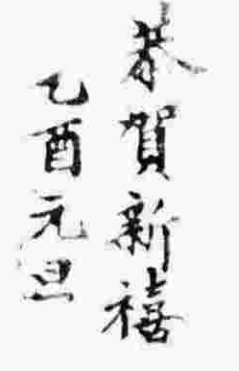 恭賀新禧
乙酉元旦